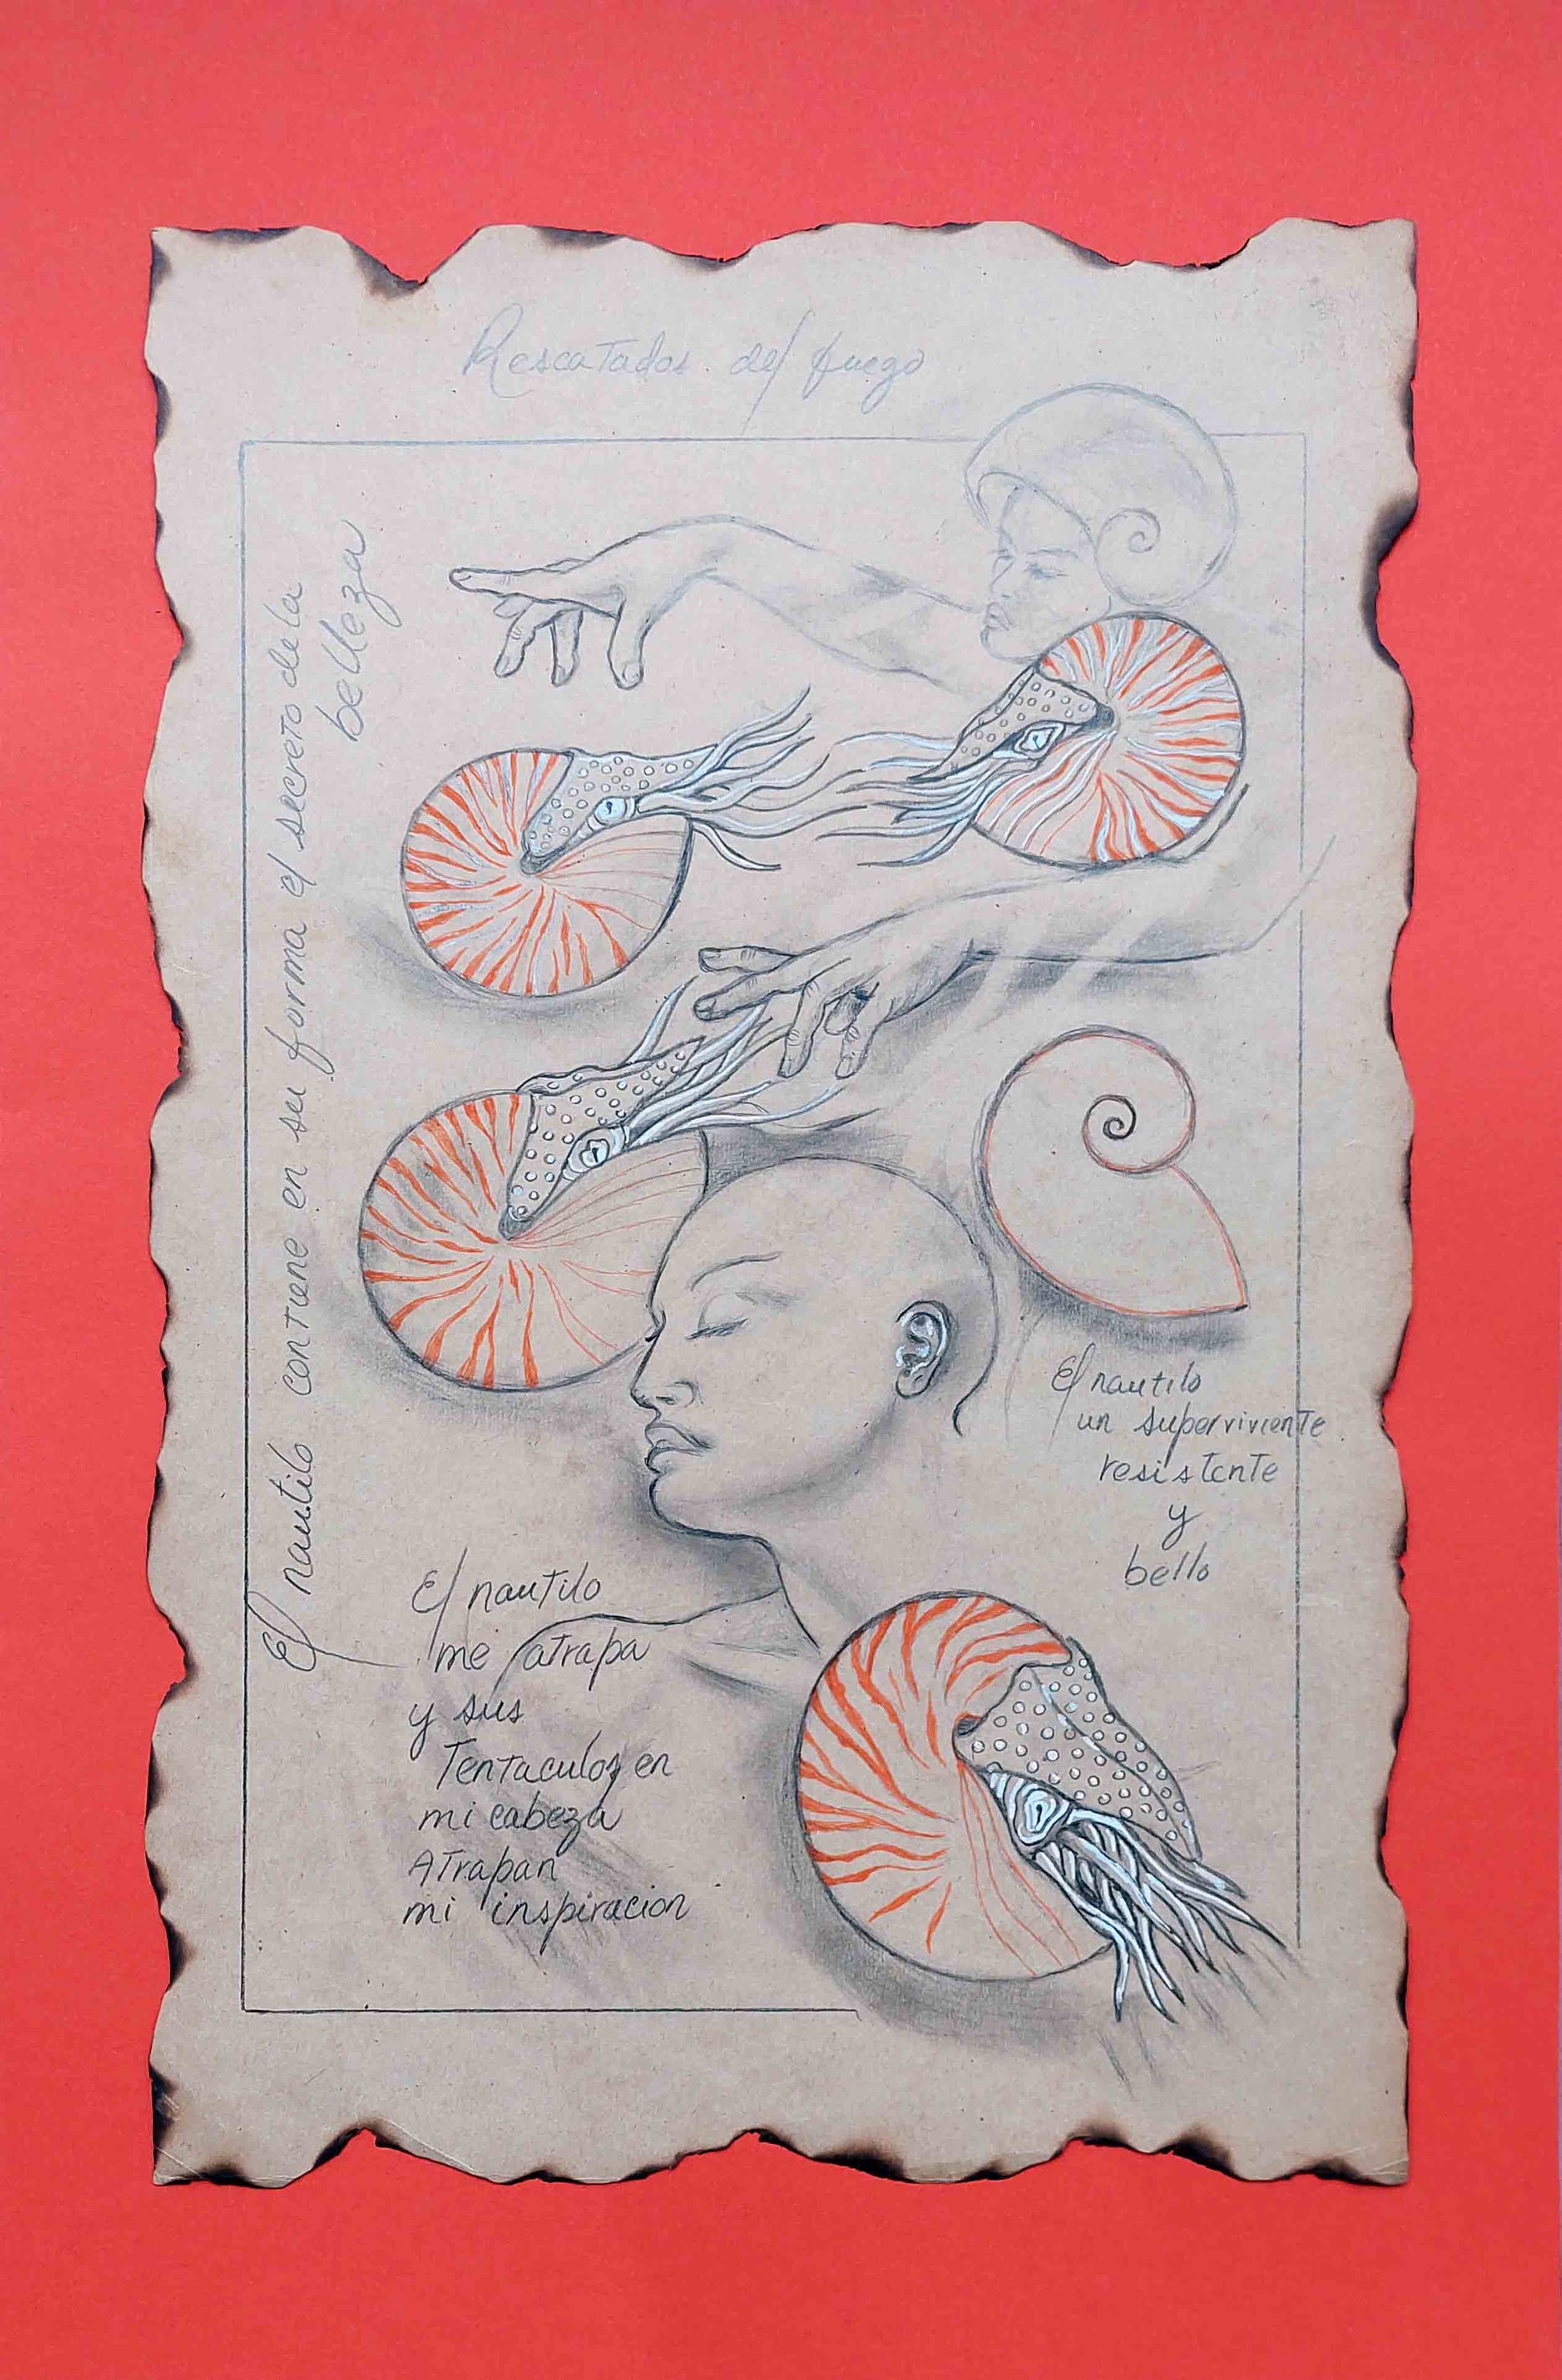 Rescatados del fuego
El nautilo contiene en su forma el secreto de la
belleza
El nautilo
un superviviente
resistente
y
bello
El nautilo
me atrapa
y sus
Tentaculos en
mi cabeza
Atrapan
mi inspiracion